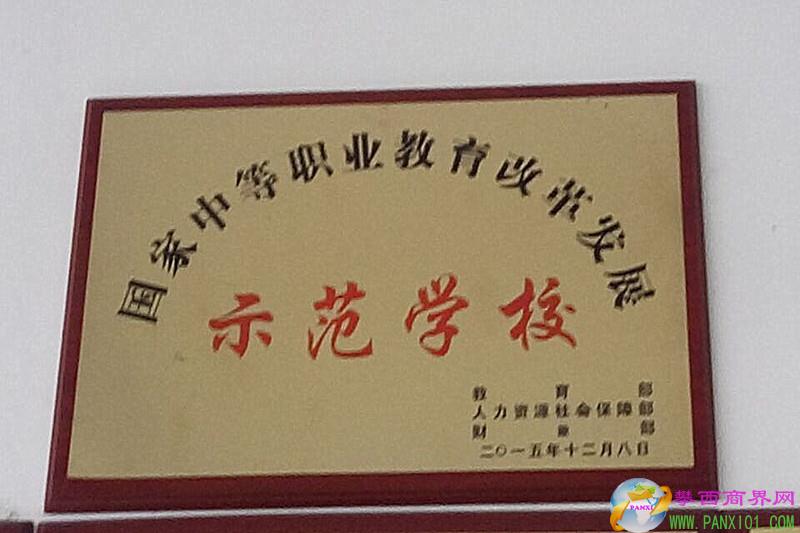 国家中等职业教育改革发展
示范学校
教育部
人力资源社会保障部
财政部
二〇一五年十二月八日
PANXI
攀西商界网
WWW.PANXI01.COM